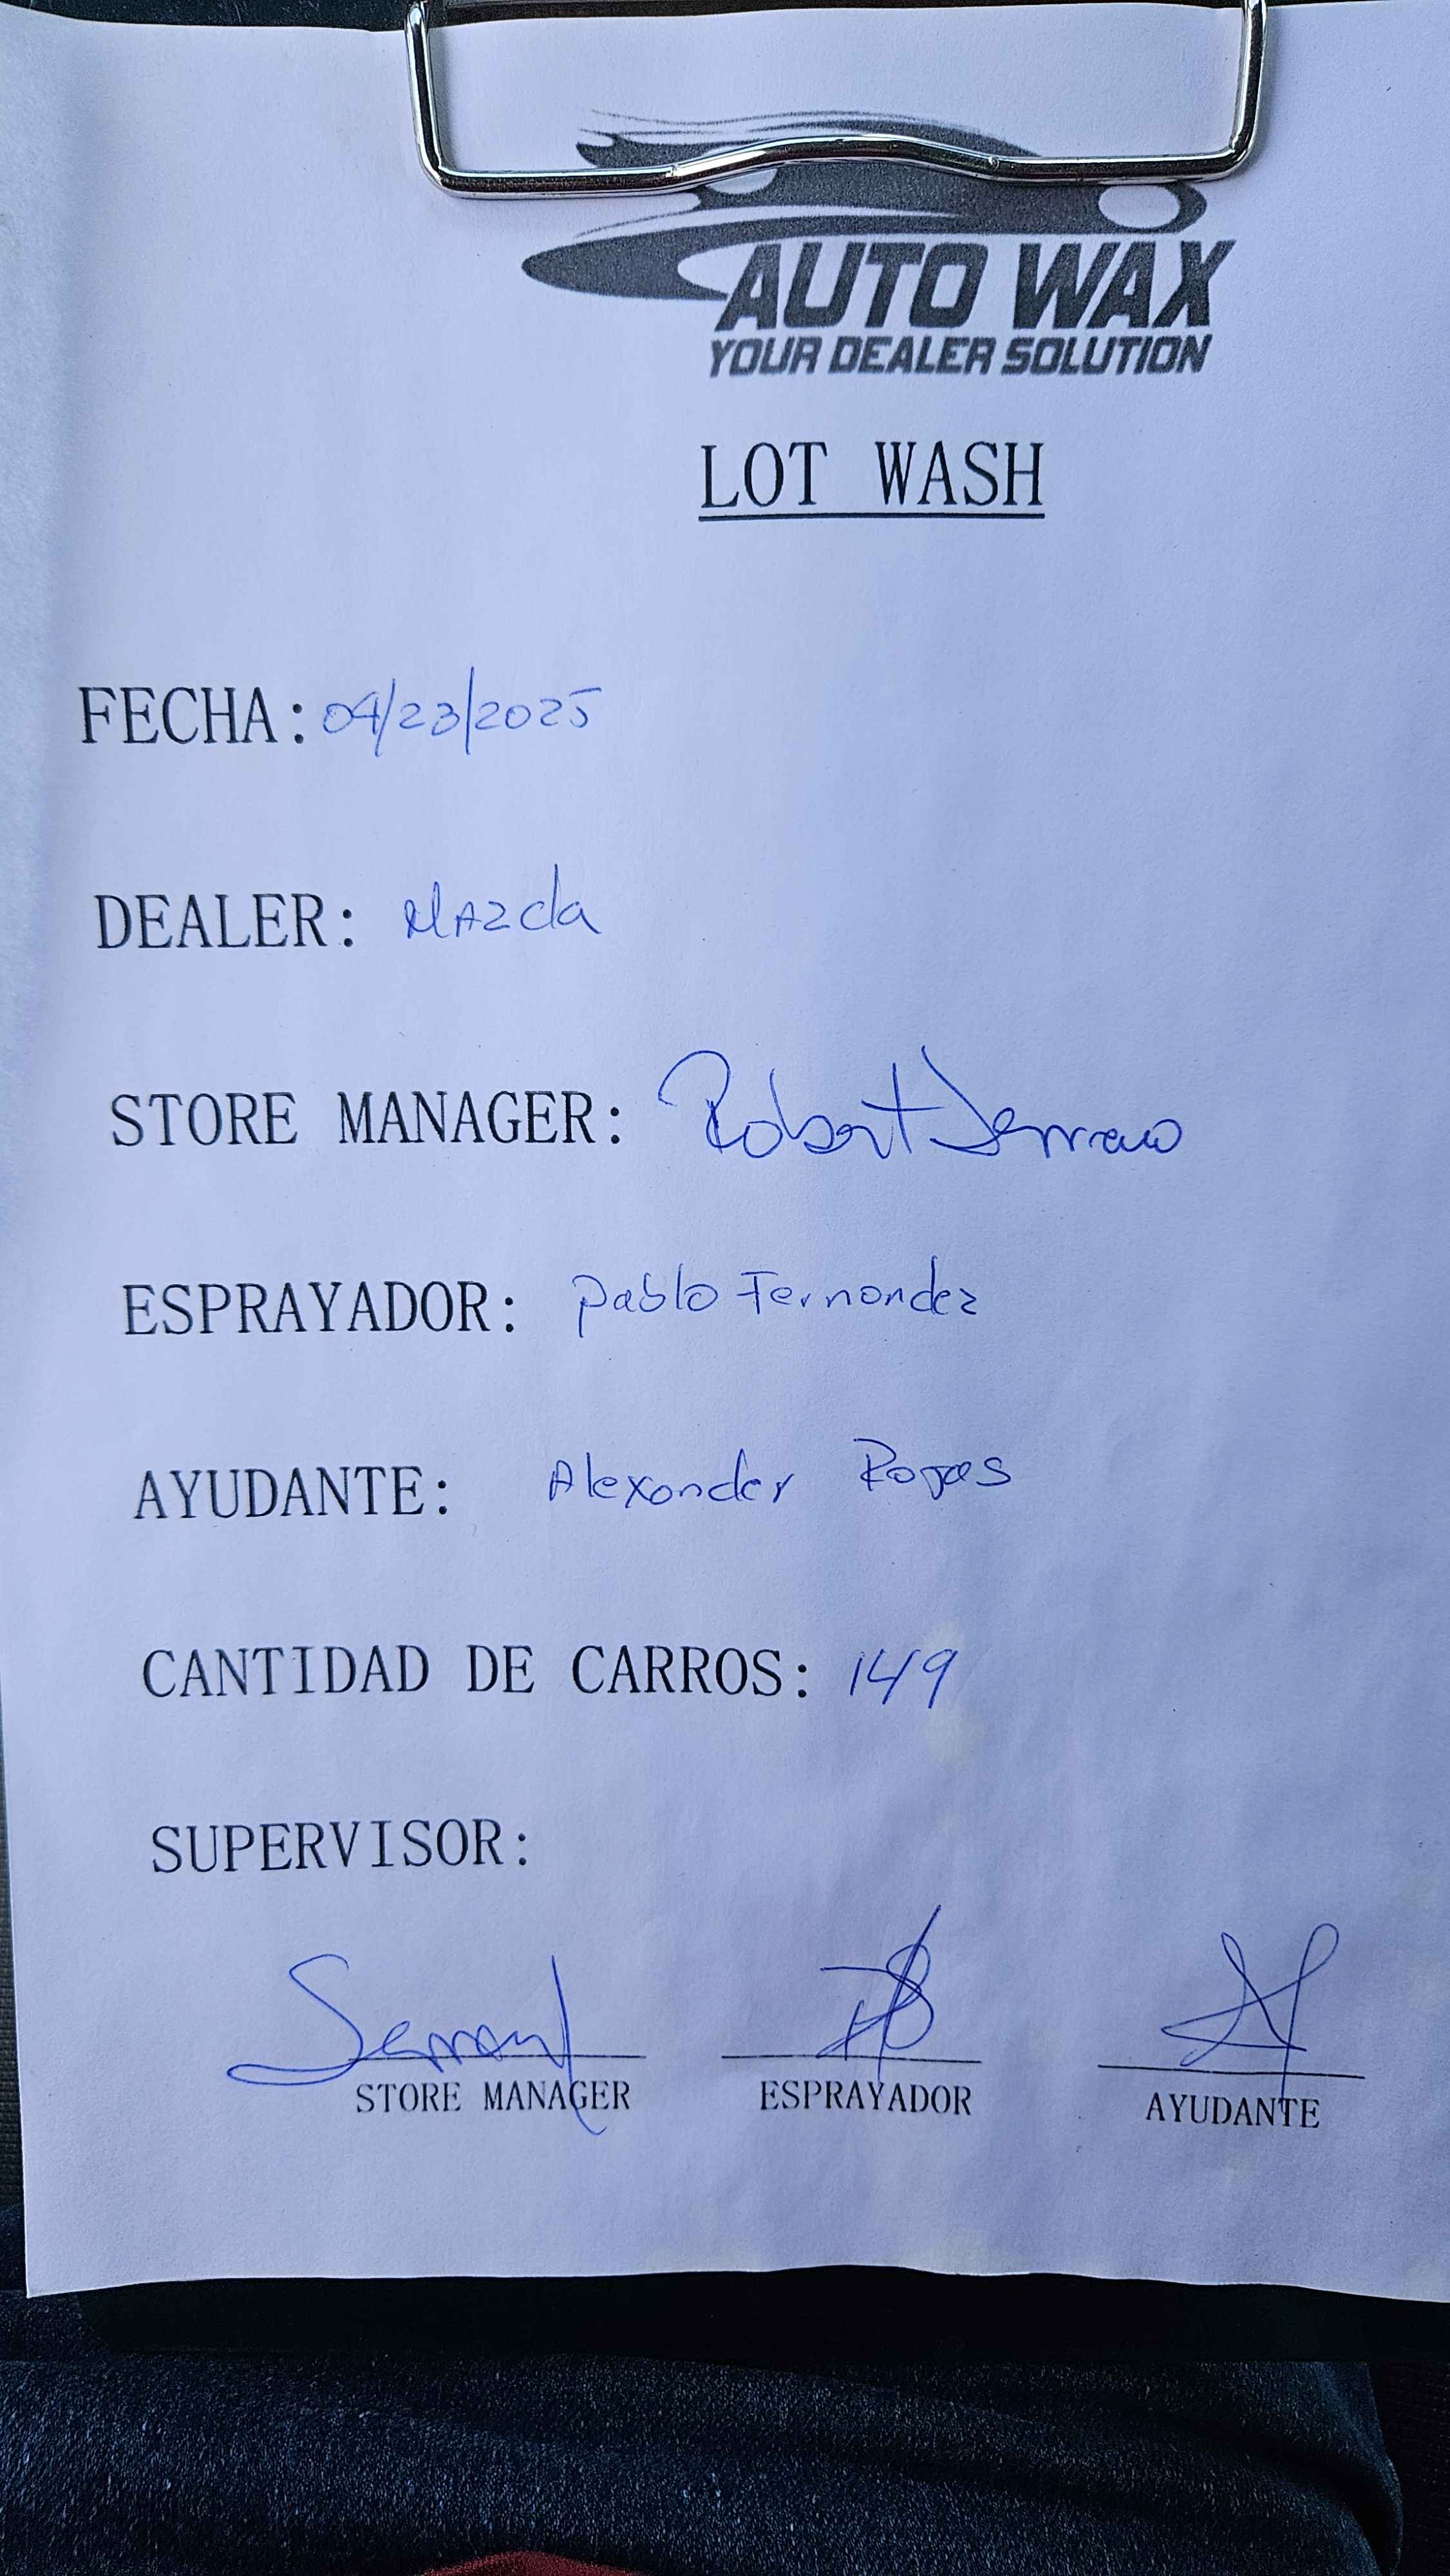 AUTO WAX
YOUR DEALER SOLUTION
LOT WASH
FECHA: 04/23/2025
DEALER: Mazda
STORE MANAGER: Robert Serrano
ESPRAYADOR: Pablo Fernondez
AYUDANTE: Alexonder Rojas
CANTIDAD DE CARROS: 149
SUPERVISOR:
STORE MANAGER ESPRAYADOR AYUDANTE